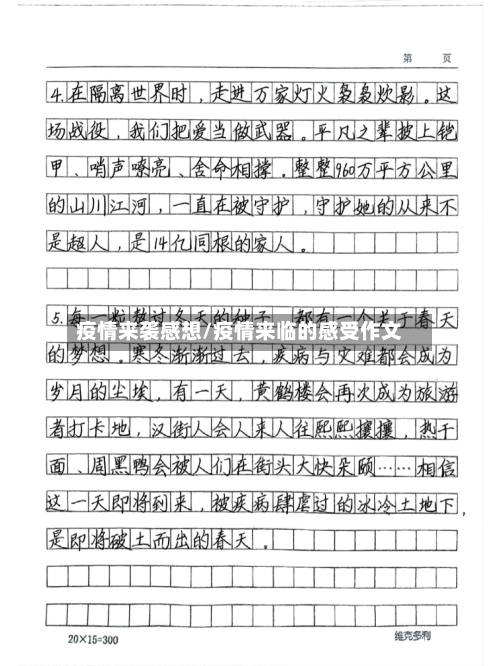 第 页
4.在隔离世界时，走进万家灯火袅袅炊影。这
场战役，我们把爱当做武器。平凡之辈披上铠
甲、哨声嘹亮、舍命相撑。整整960万平方公里
的山川江河，一直在被守护，守护她的从来不
是超人，是14亿同根的家人。
5.每一粒熬过冬天的种子，都有一个关于春天
疫情来袭感想/疫情来临的感受作文
的梦想。寒冬渐渐过去，疾病与灾难都会成为
岁月的尘埃，有一天，黄鹤楼会再次成为旅游
者打卡地，汉街人会人来人往熙熙攘攘，热干
面、周黑鸭会被人们在街头大快朵颐……相信
这一天即将到来，被疾病肆虐过的冰冷土地下，
是即将破土而出的春天。
20×15=300
维克多利